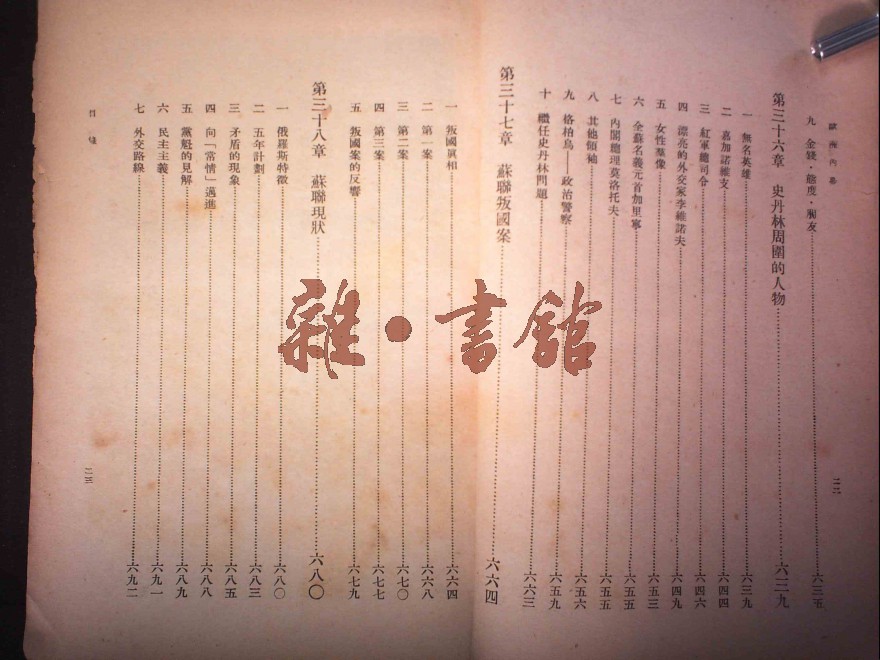 歐洲內幕
九 金錢·態度·朋友 六三五
第三十六章 史丹林周圍的人物 六三九
一 無名英雄 六三九
二 嘉加諾維支 六四四
三 紅軍總司令 六四六
四 漂亮的外交家李維諾夫 六四九
五 女性羣像 六五三
六 全蘇名義元首加里寧 六五五
七 內閣總理莫洛托夫 六五五
八 其他領袖 六五六
九 格柏烏——政治警察 六五九
十 繼任史丹林問題 六六三
二二
第三十七章 蘇聯叛國案 六六四
一 叛國眞相 六六四
二 第一案 六六八
三 第二案 六七〇
四 第三案 六七七
五 叛國案的反響 六七九
第三十八章 蘇聯現狀 六八〇
一 俄羅斯特徵 六八〇
二 五年計劃 六八三
三 矛盾的現象 六八五
四 向「常情」邁進 六八八
五 黨魁的見解 六八九
六 民主主義 六九一
七 外交路線 六九二
目錄
二三
雜·書館